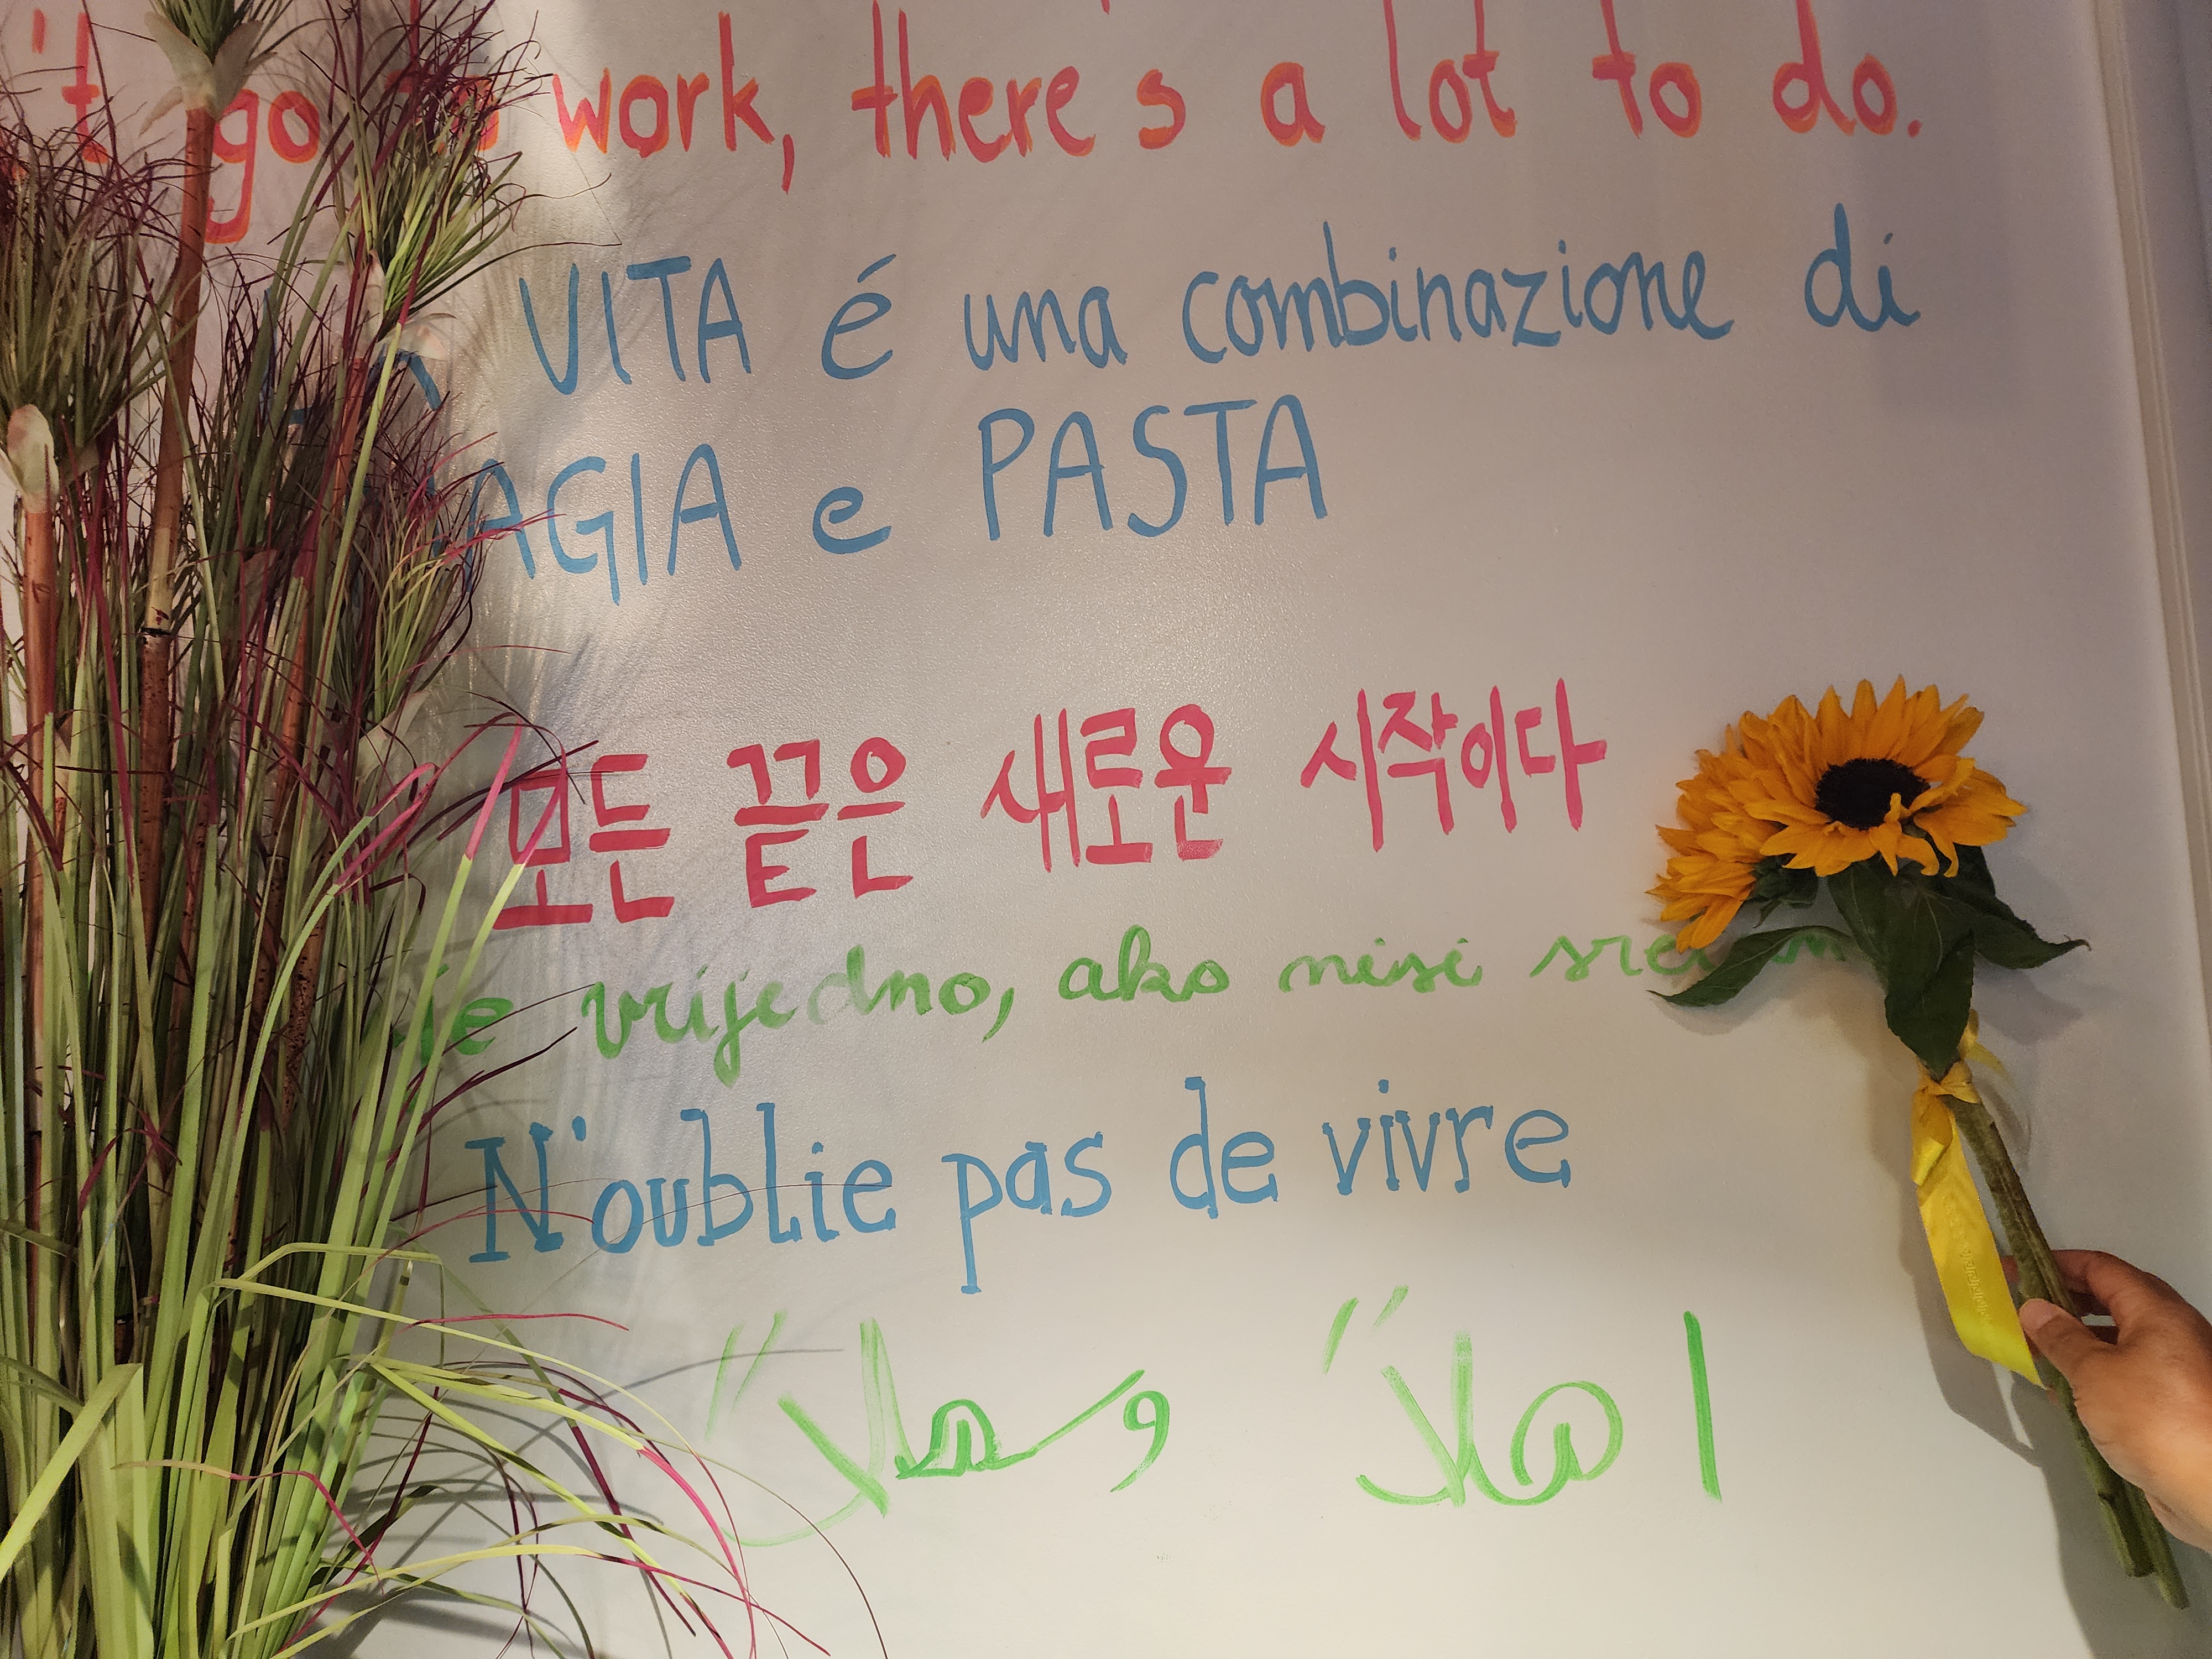 't go to work, there's a lot to do.
VITA é una combinazione di
MAGIA e PASTA
모든 끝은 새로운 시작이다
je vrijedno, ako nisi
N'oublie pas de vivre
اهلاً وسهلاً